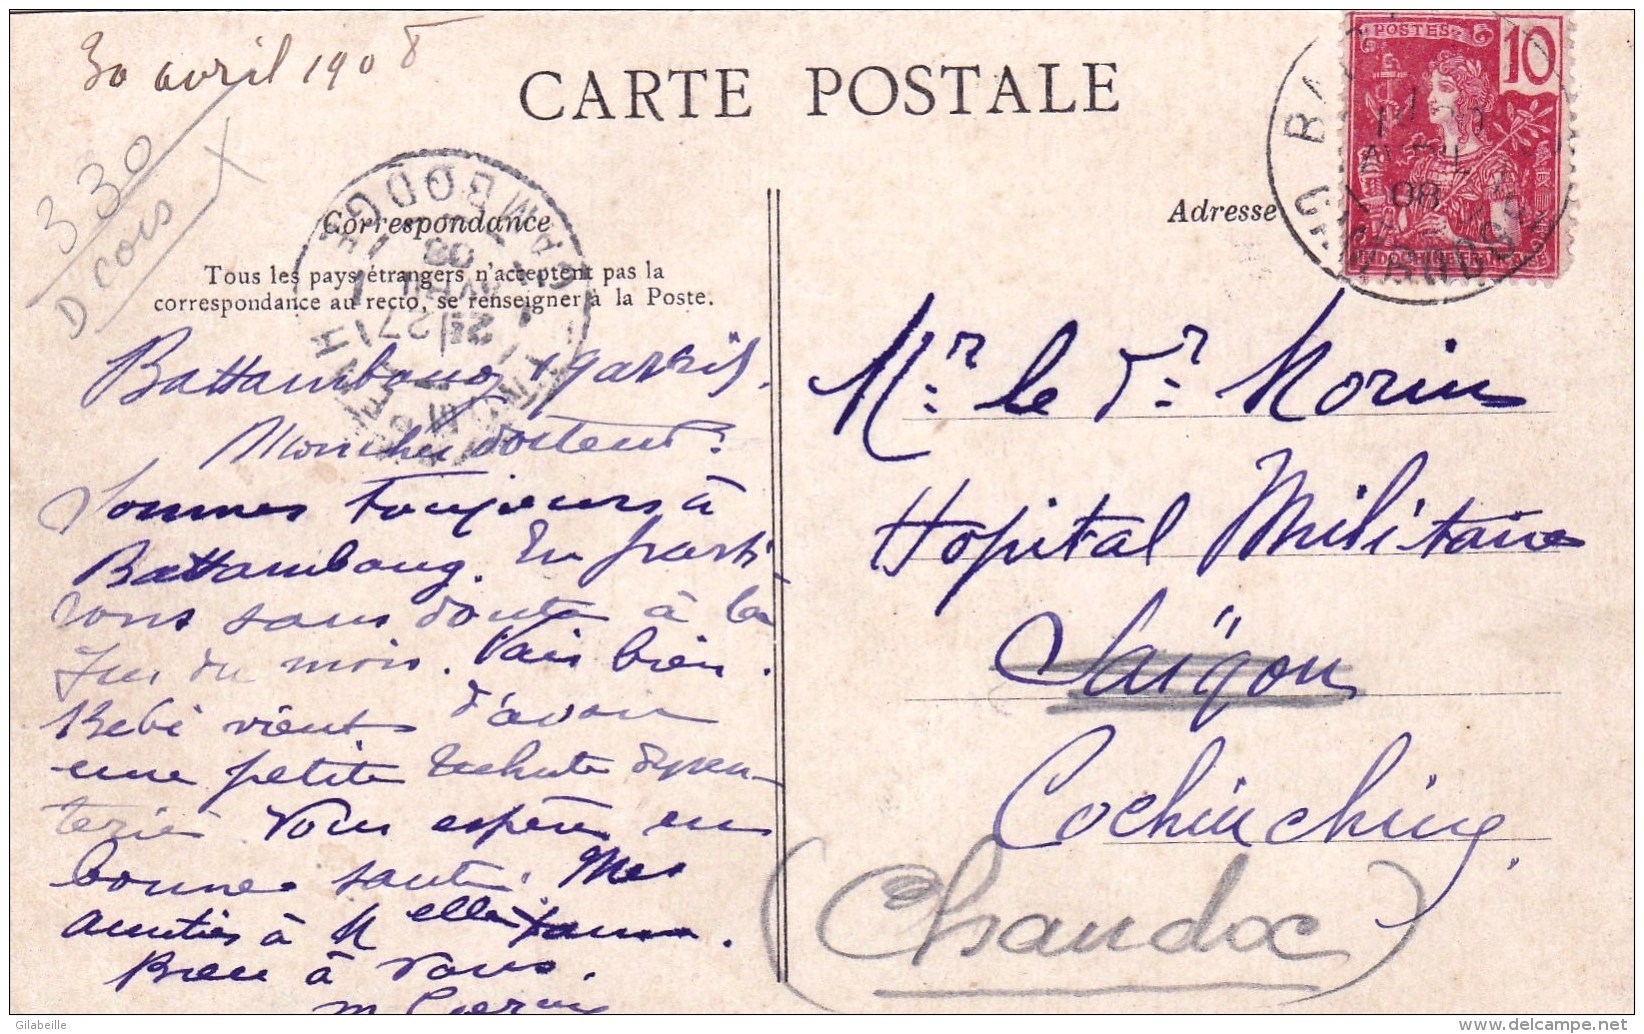 30 avril 1908
CARTE POSTALE
POSTES 10
INDOCHINE FRANÇAISE
AVRIL
08
CAMBODGE
330
D cois
Correspondance
Adresse
Tous les pays étrangers n'acceptent pas la
correspondance au recto, se renseigner à la Poste.
CAMBODGE
AVRIL
08
Battambang avril.
Mon cher docteur.
Sommes toujours à
Battambang. En parti-
rons sans doute à la
fin du mois. Vais bien.
Bébé vient d'avoir
une petite rechute dysen-
terie. Vous espère en
bonne santé. Mes
amitiés à Melle
Bien à vous.
Mr. le Dr. Morin
Hopital Militaire
Saïgon
Cochinchine.
(Chaudoc)
Gilabeille
delcampe.net